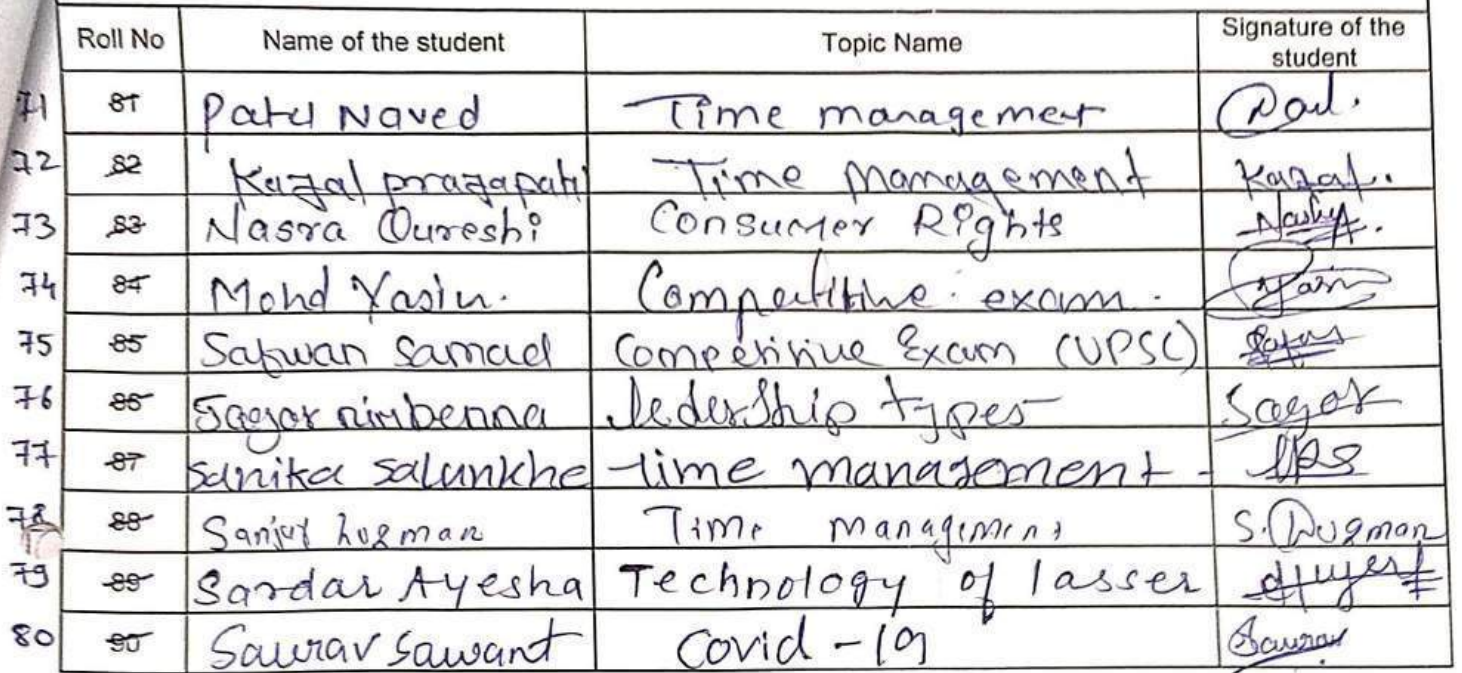 Roll No Name of the student Topic Name Signature of the student
71 81 Patel Naved Time management
72 82 Kajal prajapati Time Management Kajal.
73 83 Nasra Qureshi Consumer Rights
74 84 Mohd Yasin. Competitive. exam.
75 85 Safwan Samad Competitive Exam (UPSC)
76 86 Sagar nimbenna ledership types Sagar
77 87 Sanika Salunkhe time management -
78 88 Time Management
79 89 Sardar Ayesha Technology of lasser
80 90 Saurav Sawant Covid - 19 Saurav